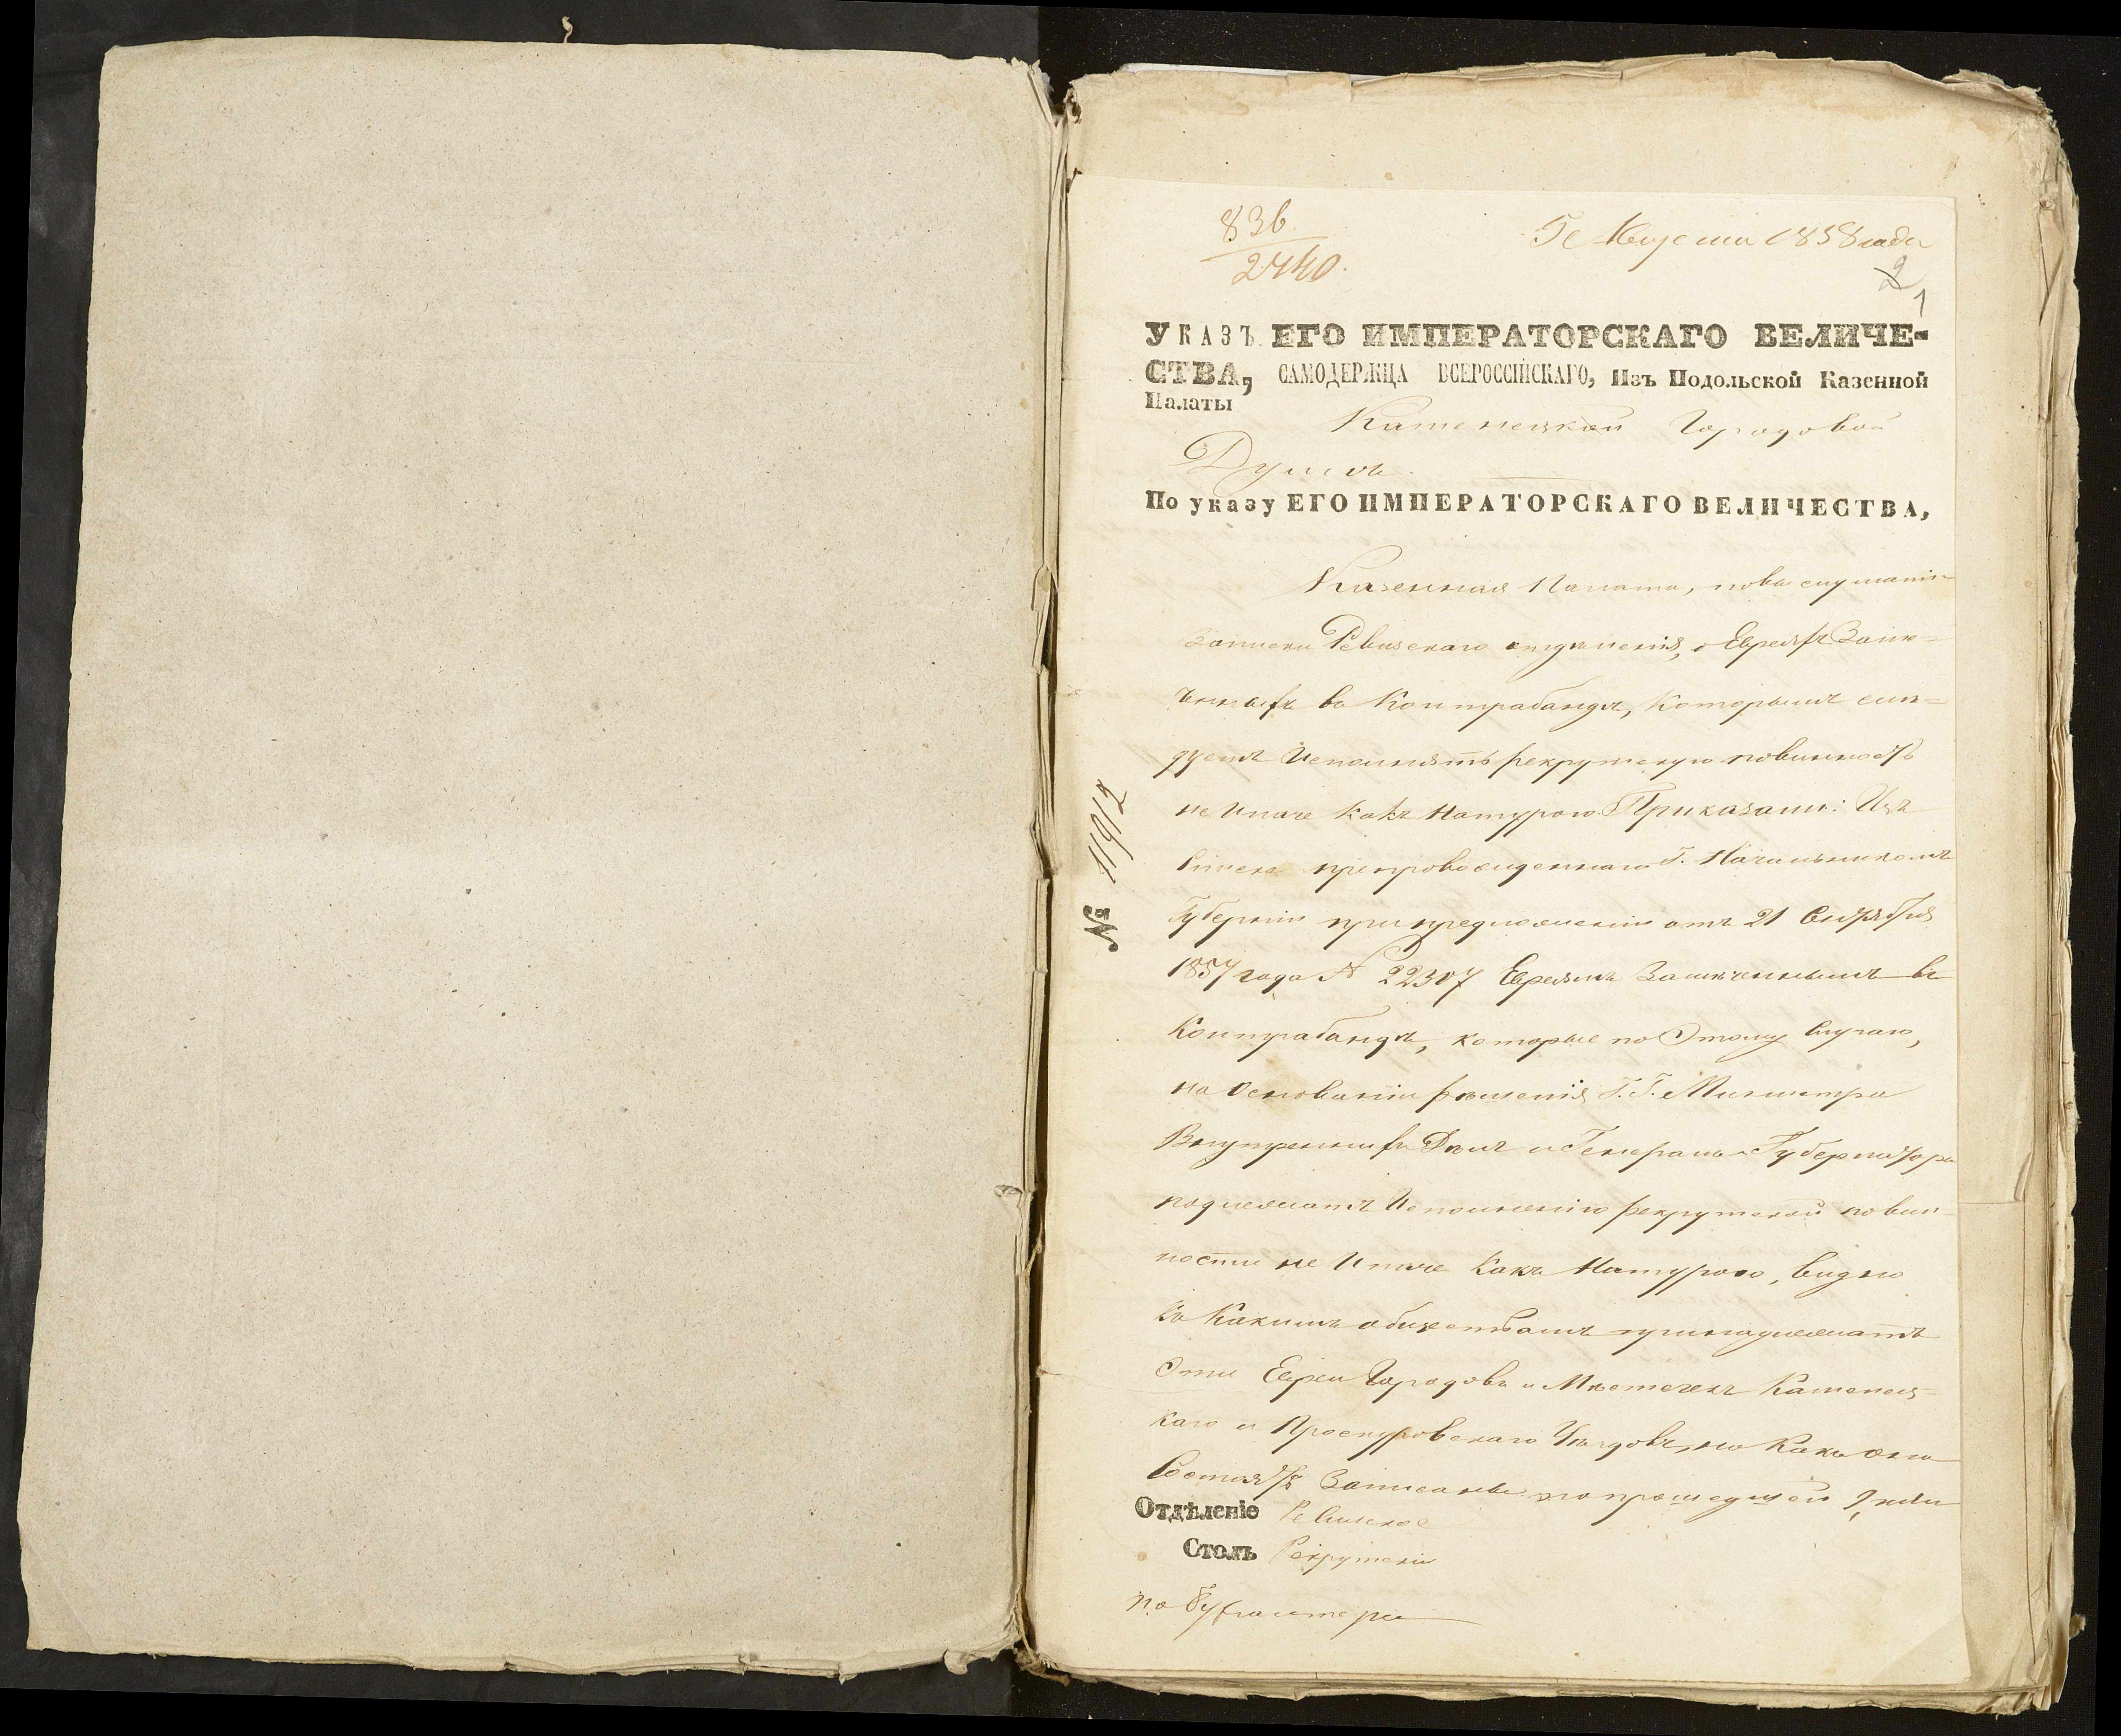 836
2440.
5 Августа 1858 года
2
1
УКАЗЪ ЕГО ИМПЕРАТОРСКАГО ВЕЛИЧЕ-
СТВА, САМОДЕРЖЦА ВСЕРОССІЙСКАГО, Изъ Подольской Казенной
Палаты
Каменецкой Городовой
Думѣ
По указу ЕГО ИМПЕРАТОРСКАГО ВЕЛИЧЕСТВА,
Казенная Палата, по выслушаніи
Записки Ревизскаго отдѣленія, о Евреяхъ Замѣ=
ченныхъ въ Контрабандѣ, Которымъ слѣ=
дуетъ Исполнять рекрутскую повинность
не Иначе Какъ Натурою. Приказали: Изъ
Списка препровожденнаго Г. Начальникомъ
Губерніи при предложеніи отъ 21 Октября
1857 года № 22307 Евреямъ Замѣченнымъ въ
Контрабандѣ, которые по Этому Случаю,
на Основаніи рѣшенія Г.Г. Министра
Внутреннихъ Дѣлъ и Генералъ-Губернатора
подлежатъ Исполненію рекрутской повин-
ности не Иначе Какъ Натурою, Видно
Къ Какимъ обществамъ принадлежатъ
Эти Евреи Городовъ и Мѣстечекъ Каменец=
каго и Проскуровскаго Уѣздовъ, но Какъ они
Состоятъ Записаны по прошедшей 9
№ 11912
Отдѣленіе Ревизское
Столъ Рекрутскій
по бухгалтеріи